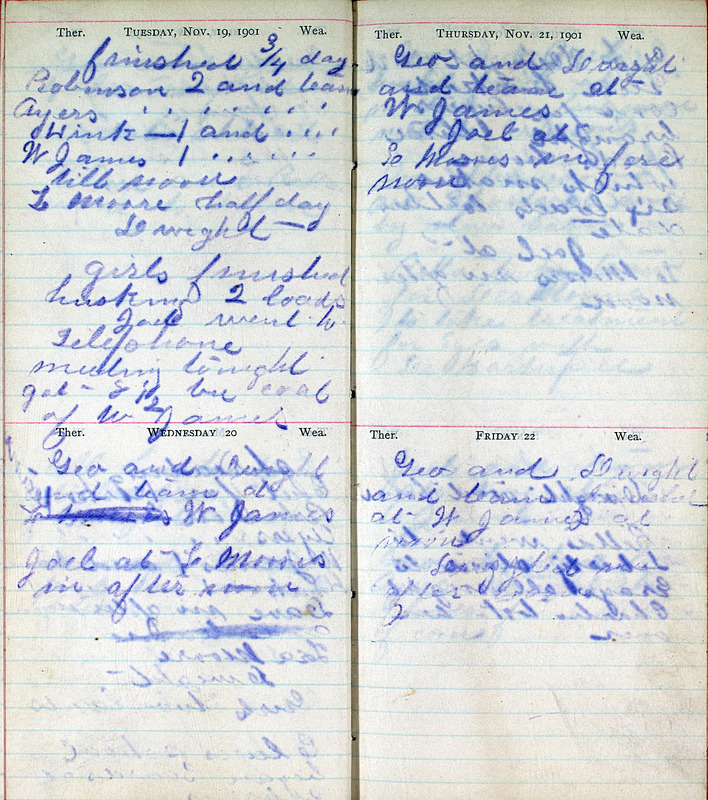 Ther. TUESDAY, NOV. 19, 1901 Wea.
finished 3/4 day
Robinson 2 and team
Ayers " " " " "
Wink — 1 and " "
W James 1 " " "
till noon
L Moore half day
Dwight —
girls finished
husking 2 loads
Joel went to
Telephone
meeting tonight
got bu coal
of W James
Ther. WEDNESDAY 20 Wea.
Geo and Dwight
and team at
W James
Joel at L Moores
in after noon
Ther. THURSDAY, NOV. 21, 1901 Wea.
Geo and Dwight
and team at
W James
Joel at
L Moores in fore
noon
Ther. FRIDAY 22 Wea.
Geo and Dwight
and team
at W James at
noon